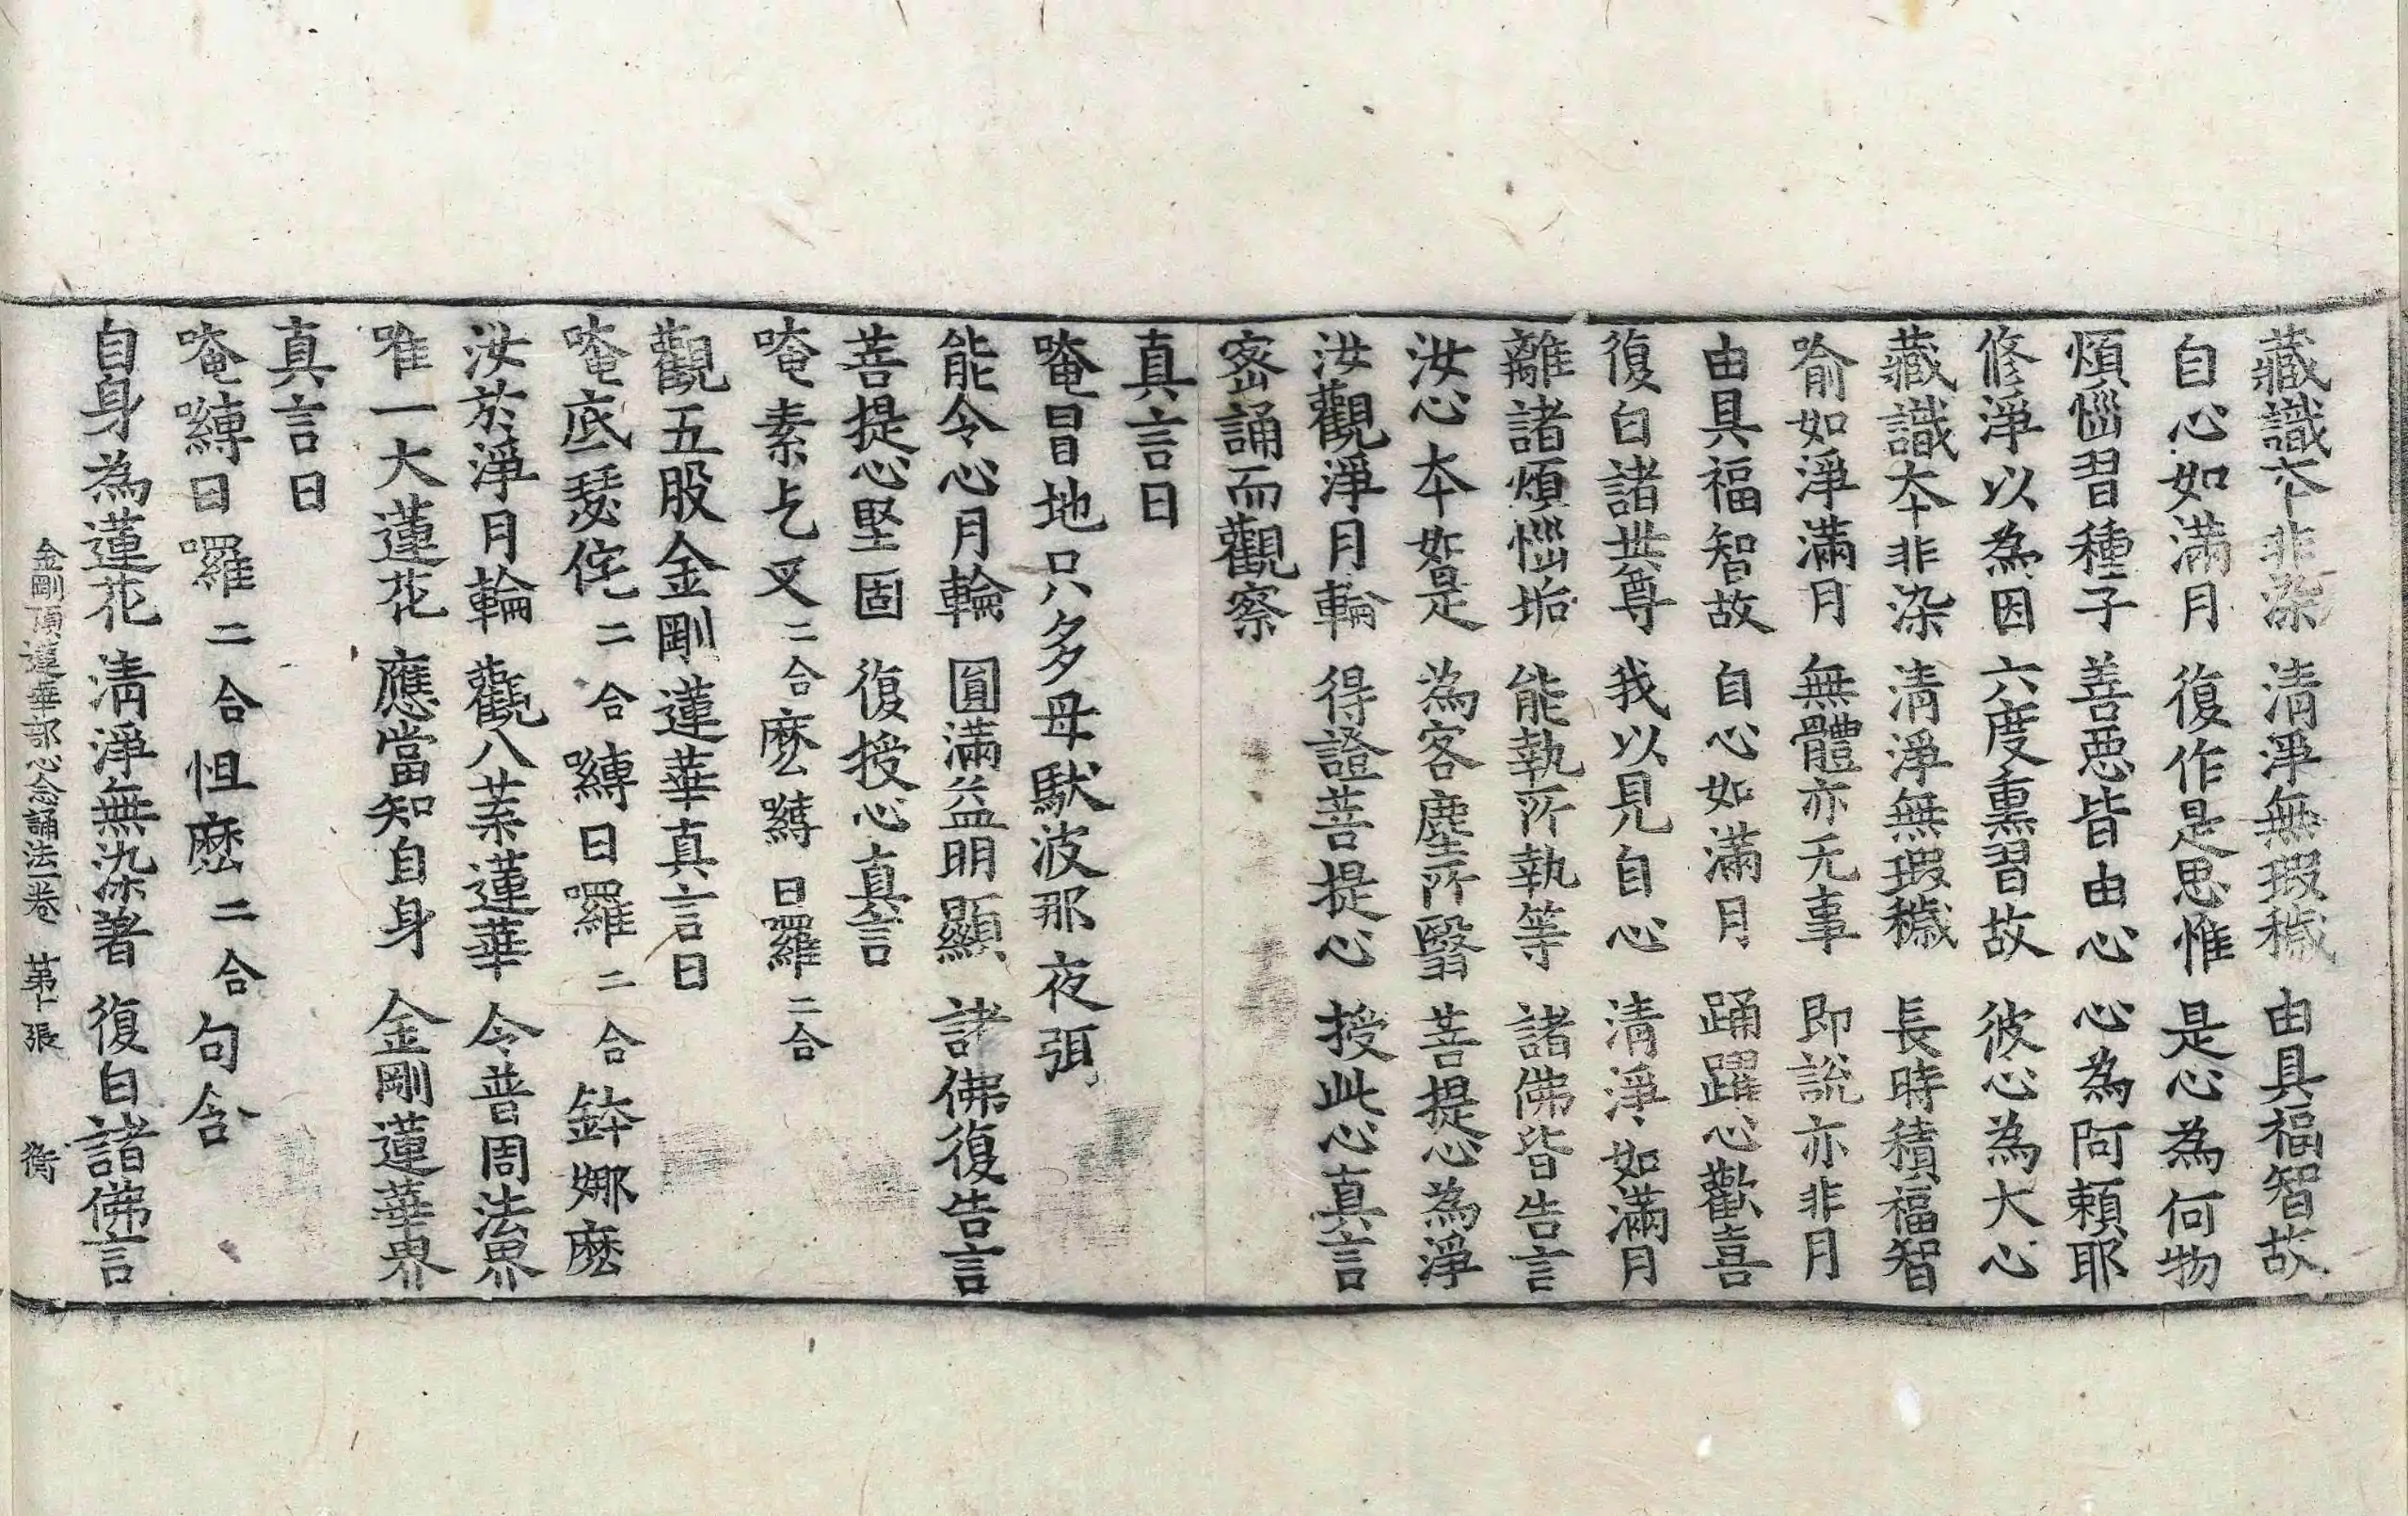 藏識本非染　清淨無瑕穢　由具福智故
自心如滿月　復作是思惟　是心為何物
煩惱習種子　善惡皆由心　心為阿賴耶
修淨以為因　六度熏習故　彼心為大心
藏識本非染　清淨無瑕穢　長時積福智
喻如淨滿月　無體亦无事　即說亦非月
由具福智故　自心如滿月　踊躍心歡喜
復白諸世尊　我以見自心　清淨如滿月
離諸煩惱垢　能執所執等　諸佛皆告言
汝心本如是　為客塵所翳　菩提心為淨
汝觀淨月輪　得證菩提心　授此心真言
密誦而觀察
真言曰
唵冒地只多母馱波那夜弭
能令心月輪　圓滿益明顯　諸佛復告言
菩提心堅固　復授心真言
唵素乞叉二合麽囀日羅二合
觀五股金剛蓮華真言曰
唵底瑟侘二合囀日囉二合鉢娜麽
汝於淨月輪　觀八葉蓮華　令普周法界
唯一大蓮花　應當知自身　金剛蓮華界
真言曰
唵囀日囉二合怛麽二合句含
自身為蓮花　清淨無染著　復白諸佛言
金剛頂蓮華部心念誦法一卷　第十張　衡